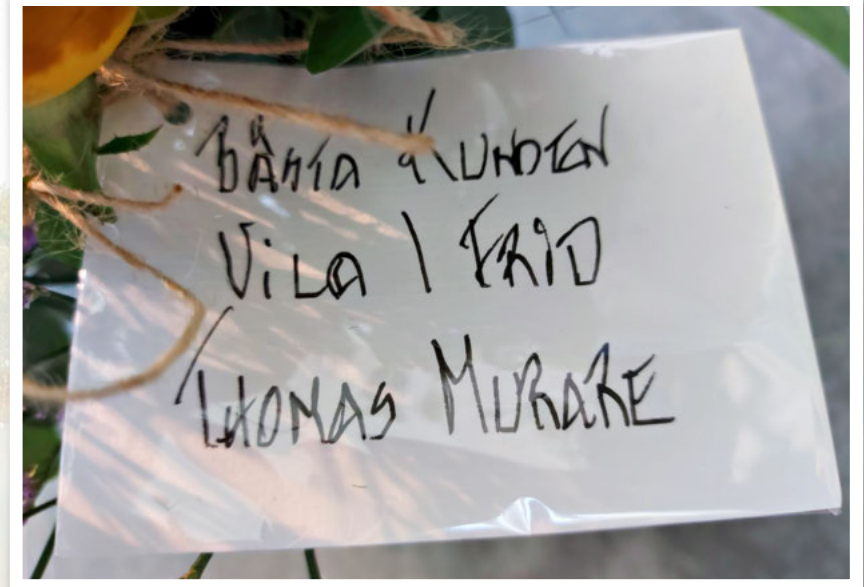 BÄSTA KUNDEN
VILA I FRID
THOMAS MURARE